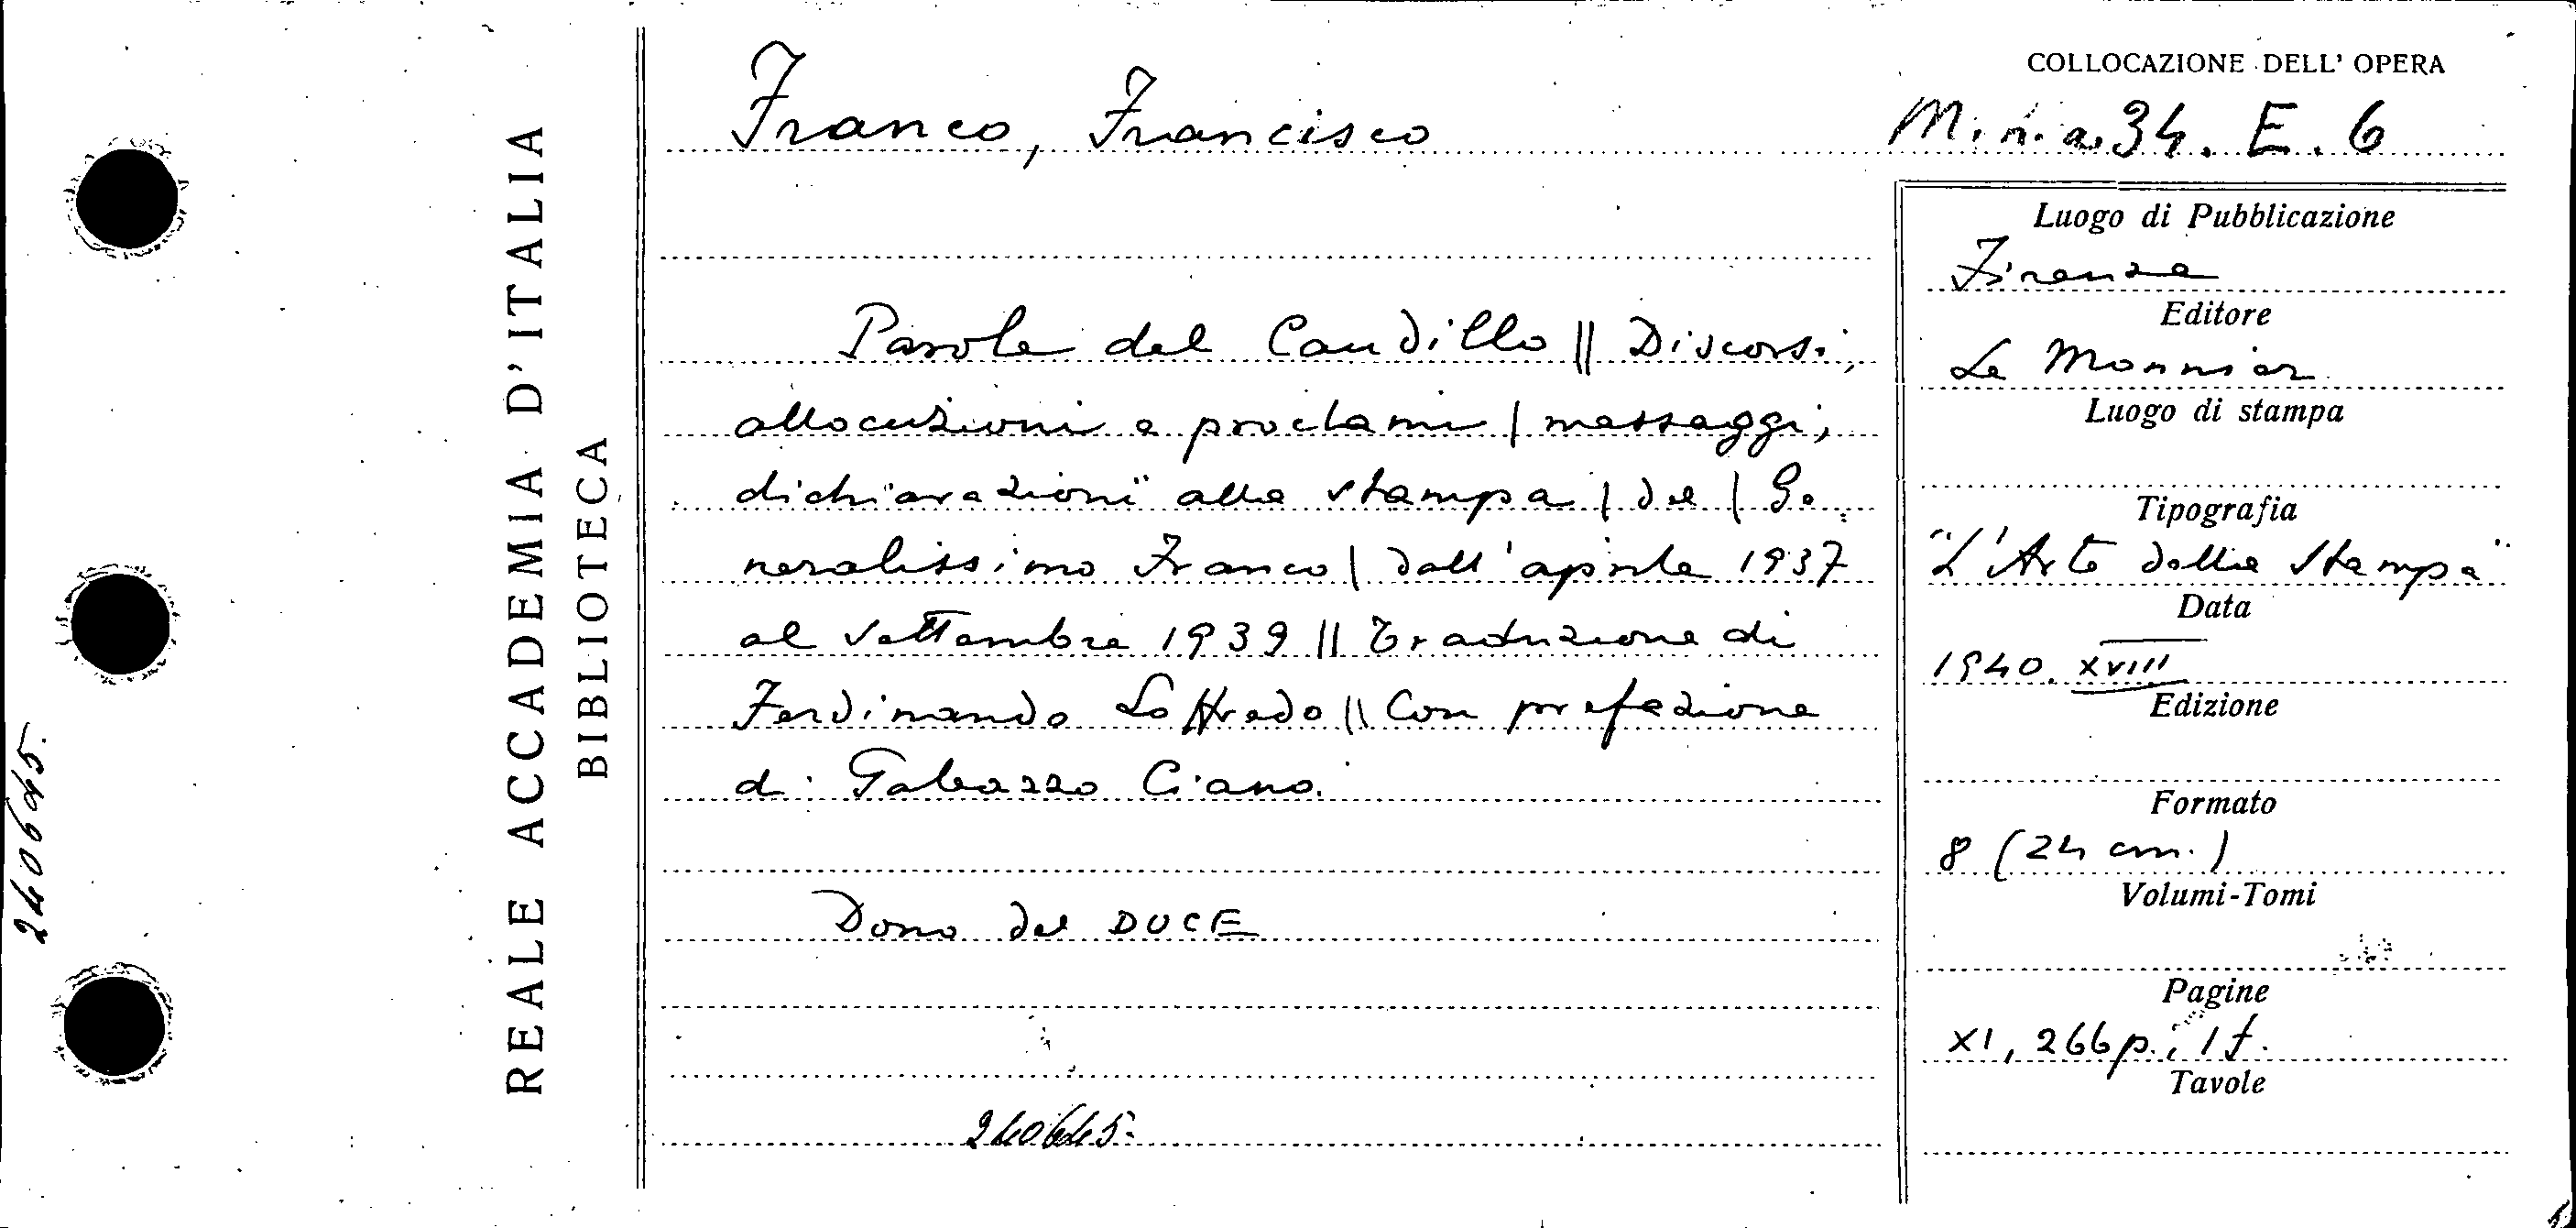 240645.
REALE ACCADEMIA D'ITALIA
BIBLIOTECA
Franco, Francisco
COLLOCAZIONE DELL' OPERA
M. n. a. 34. E. 6
Parole del Caudillo || Discorsi,
allocuzioni e proclami | messaggi,
dichiarazioni alla stampa | del | Ge
neralissimo Franco | dall'aprile 1937
al settembre 1939 || Traduzione di
Ferdinando Loffredo || Con prefazione
di Galeazzo Ciano.
Dono del DUCE
240645.
Luogo di Pubblicazione
Firenze
Editore
Le Monnier
Luogo di stampa
Tipografia
"L'Arte della Stampa"
Data
1940. XVIII
Edizione
Formato
8 (24 cm.)
Volumi-Tomi
Pagine
XI, 266 p.; 1 f.
Tavole